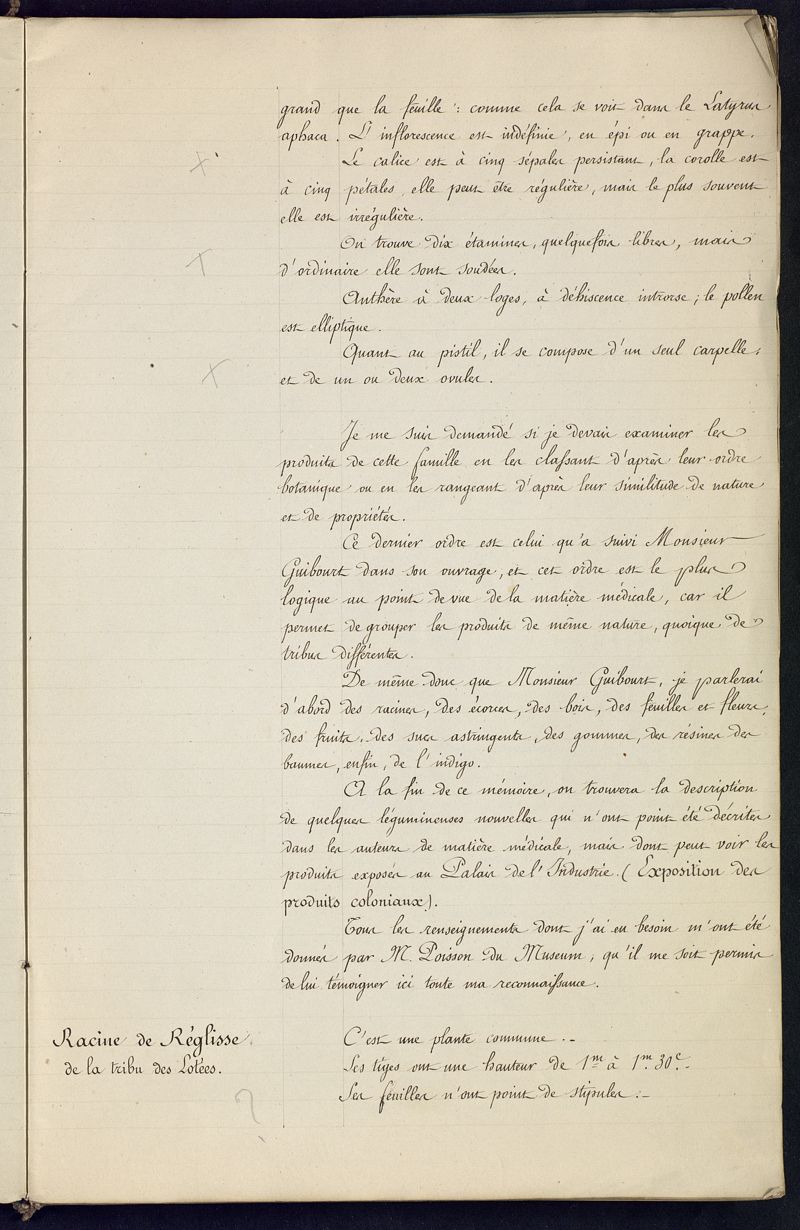 grand que la feuille : comme cela se voit dans le Latyrus
aphaca. L'inflorescence est indéfinie, en épi ou en grappe.
Le calice est à cinq sépales persistant, la corolle est
à cinq pétales, elle peut être régulière, mais le plus souvent
elle est irrégulière.
On trouve dix étamines, quelquefois libres, mais
d'ordinaire elle sont soudées.
Anthère à deux loges, à déhiscence introrse ; le pollen
est elliptique.
Quant au pistil, il se compose d'un seul carpelle,
et de un ou deux ovules.
Je me suis demandé si je devais examiner les
produits de cette famille en les classant d'après leur ordre
botanique ou en les rangeant d'après leur similitude de nature
et de propriétés.
Ce dernier ordre est celui qu'a suivi Monsieur
Guibourt dans son ouvrage, et cet ordre est le plus
logique au point de vue de la matière médicale, car il
permet de grouper les produits de même nature, quoique de
tribus différentes.
De même donc que Monsieur Guibourt, je parlerai
d'abord des racines, des écorces, des bois, des feuilles et fleurs,
des fruits, des sucs astringents, des gommes, des résines des
baumes, enfin, de l'indigo.
A la fin de ce mémoire, on trouvera la description
de quelques légumineuses nouvelles qui n'ont point été décrites
dans les auteurs de matière médicale, mais dont peut voir les
produits exposés au Palais de l'Industrie (Exposition des
produits coloniaux).
Tous les renseignements dont j'ai eu besoin m'ont été
donnés par M. Poisson du Museum, qu'il me soit permis
de lui témoigner ici toute ma reconnaissance.
Racine de Réglisse
de la tribu des Lotées.
C'est une plante commune. -
Ses tiges ont une hauteur de 1m à 1m. 30c. -
Ses feuilles n'ont point de stipules. -